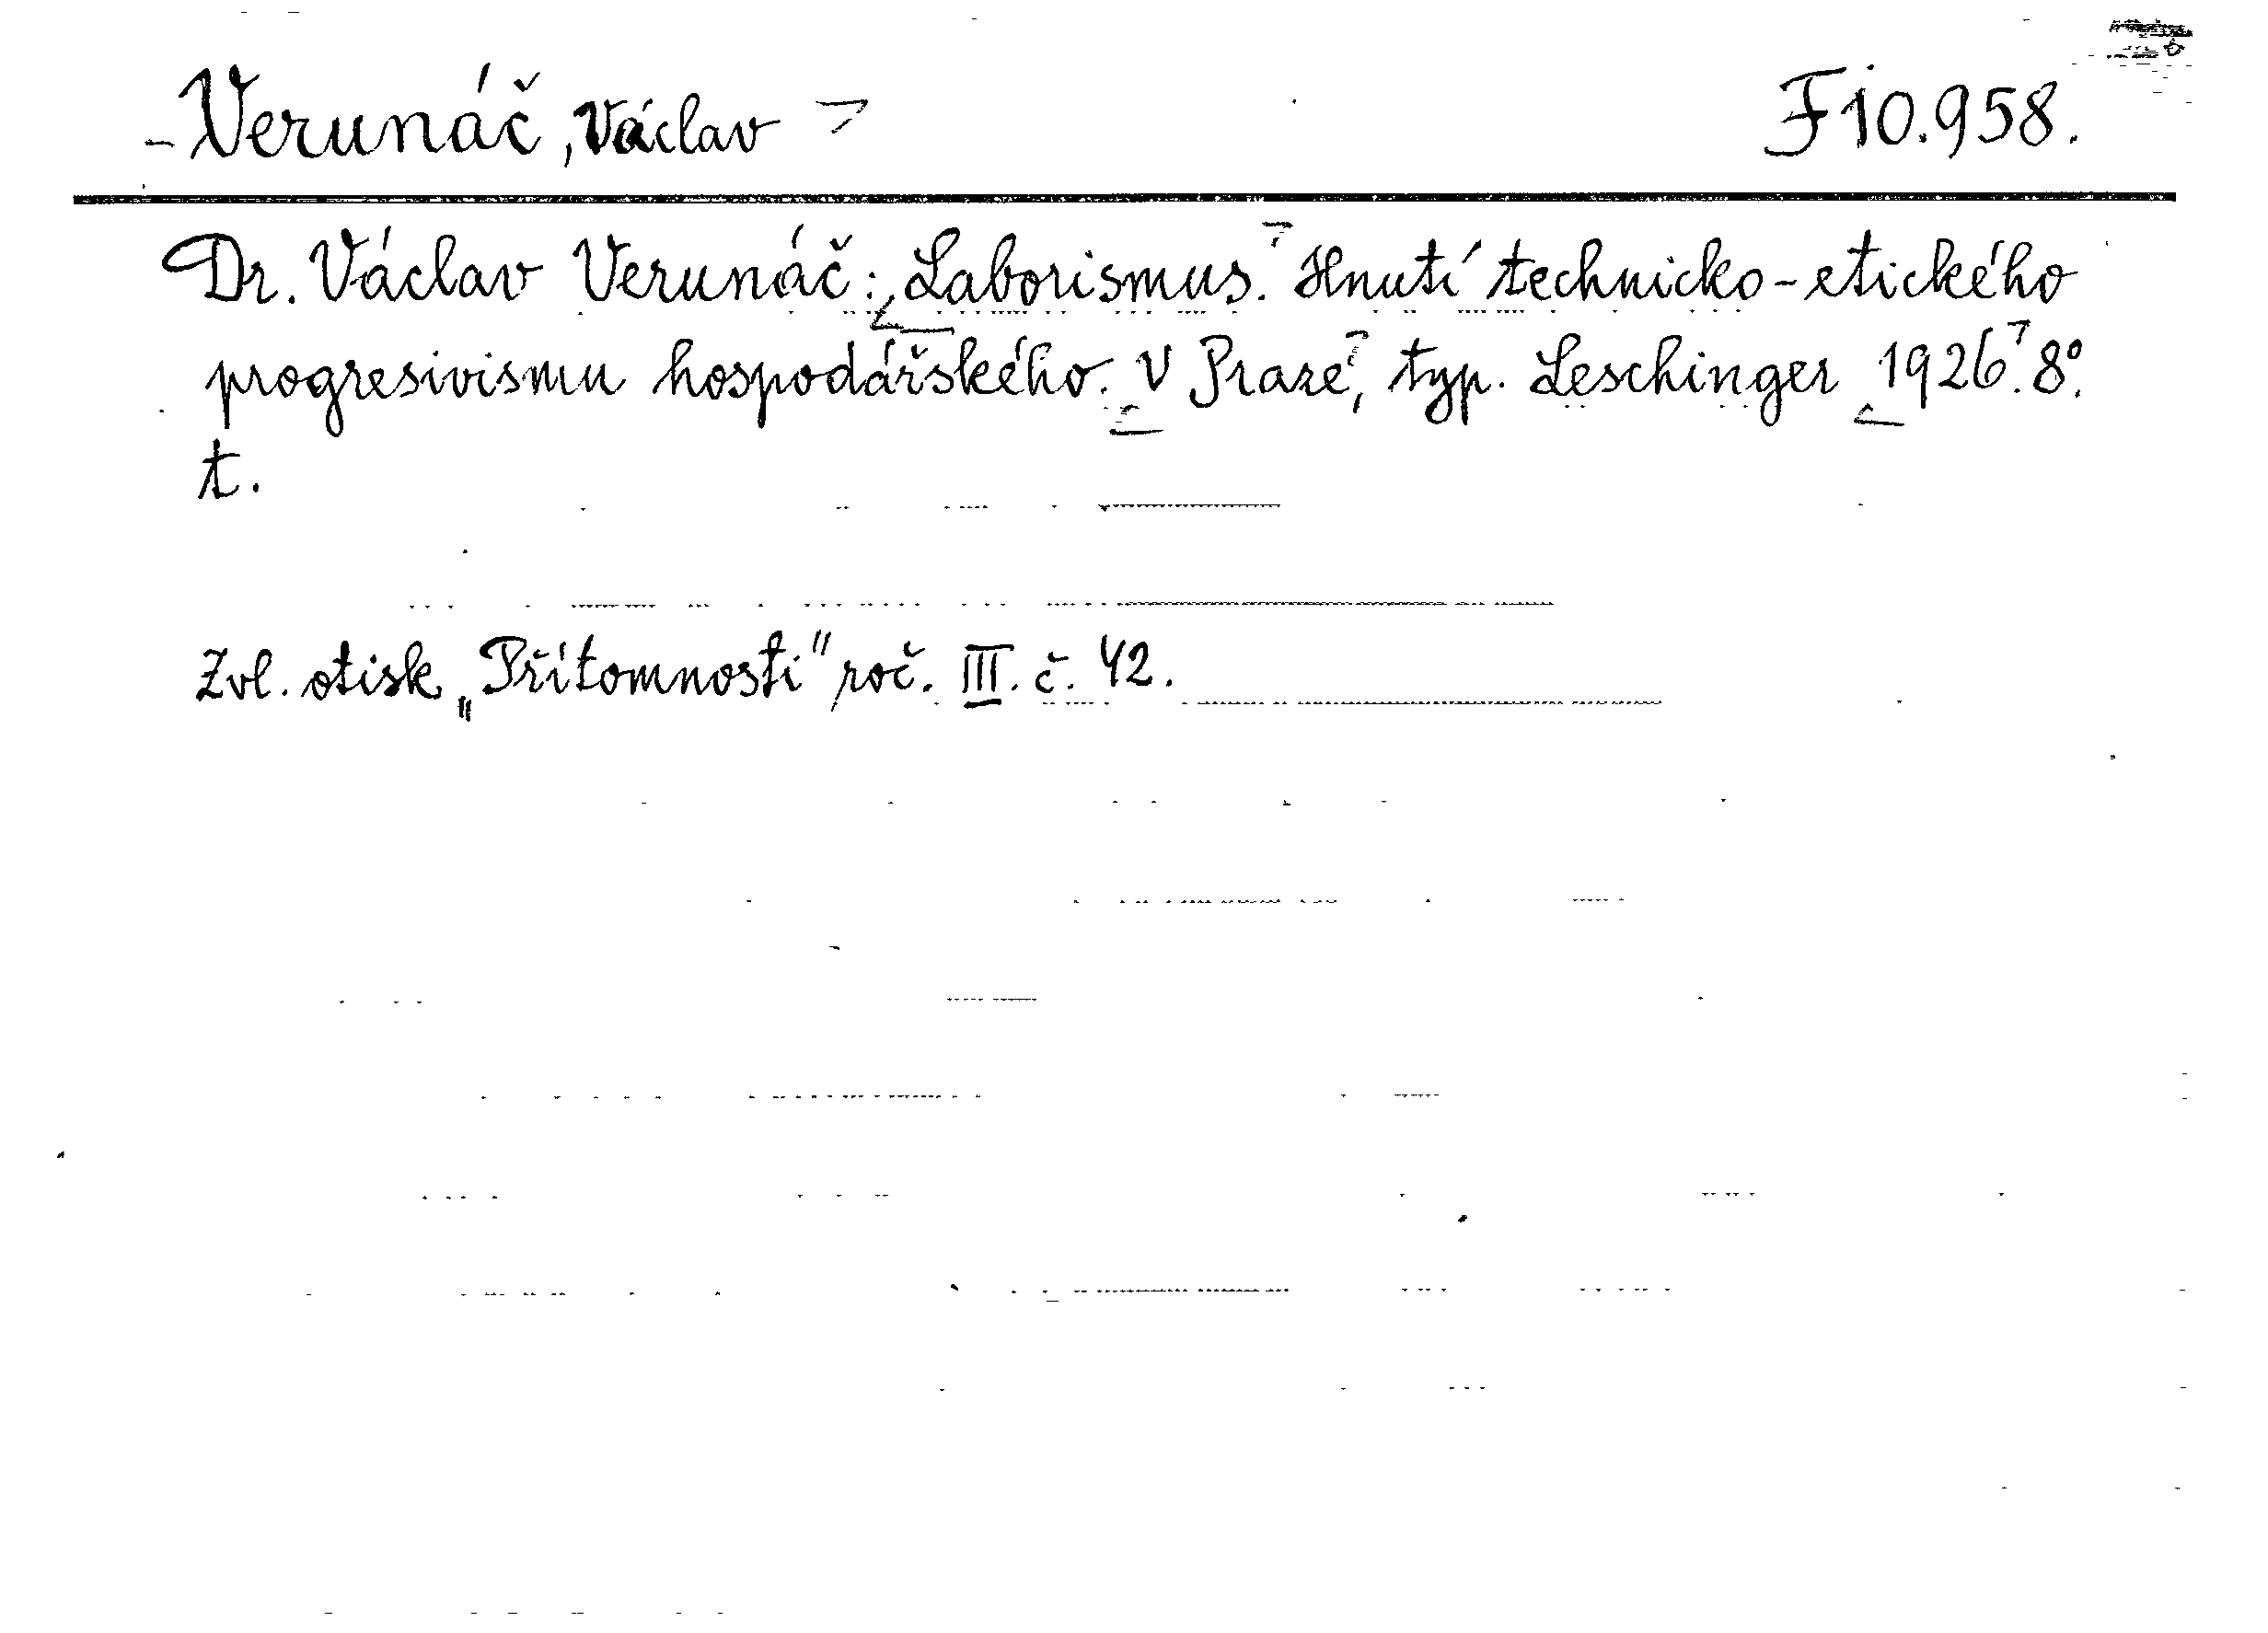 Verunáč, Václav F 10.958.
Dr. Václav Verunáč: Laborismus. Hnutí technicko-etického
progresivismu hospodářského. V Praze, typ. Leschinger 1926. 8°.
t.
Zvl. otisk „Přítomnosti" roč. III. č. 42.